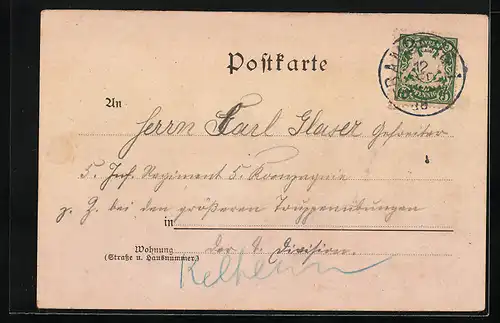 Postkarte
An
Herrn Karl Glaser Gefreiter
5. Inf. Regiment 5. Kompagnie
z. Z. bei den größeren Truppenübungen
in
der Division.
Wohnung
(Straße u. Hausnummer)
Kelheim